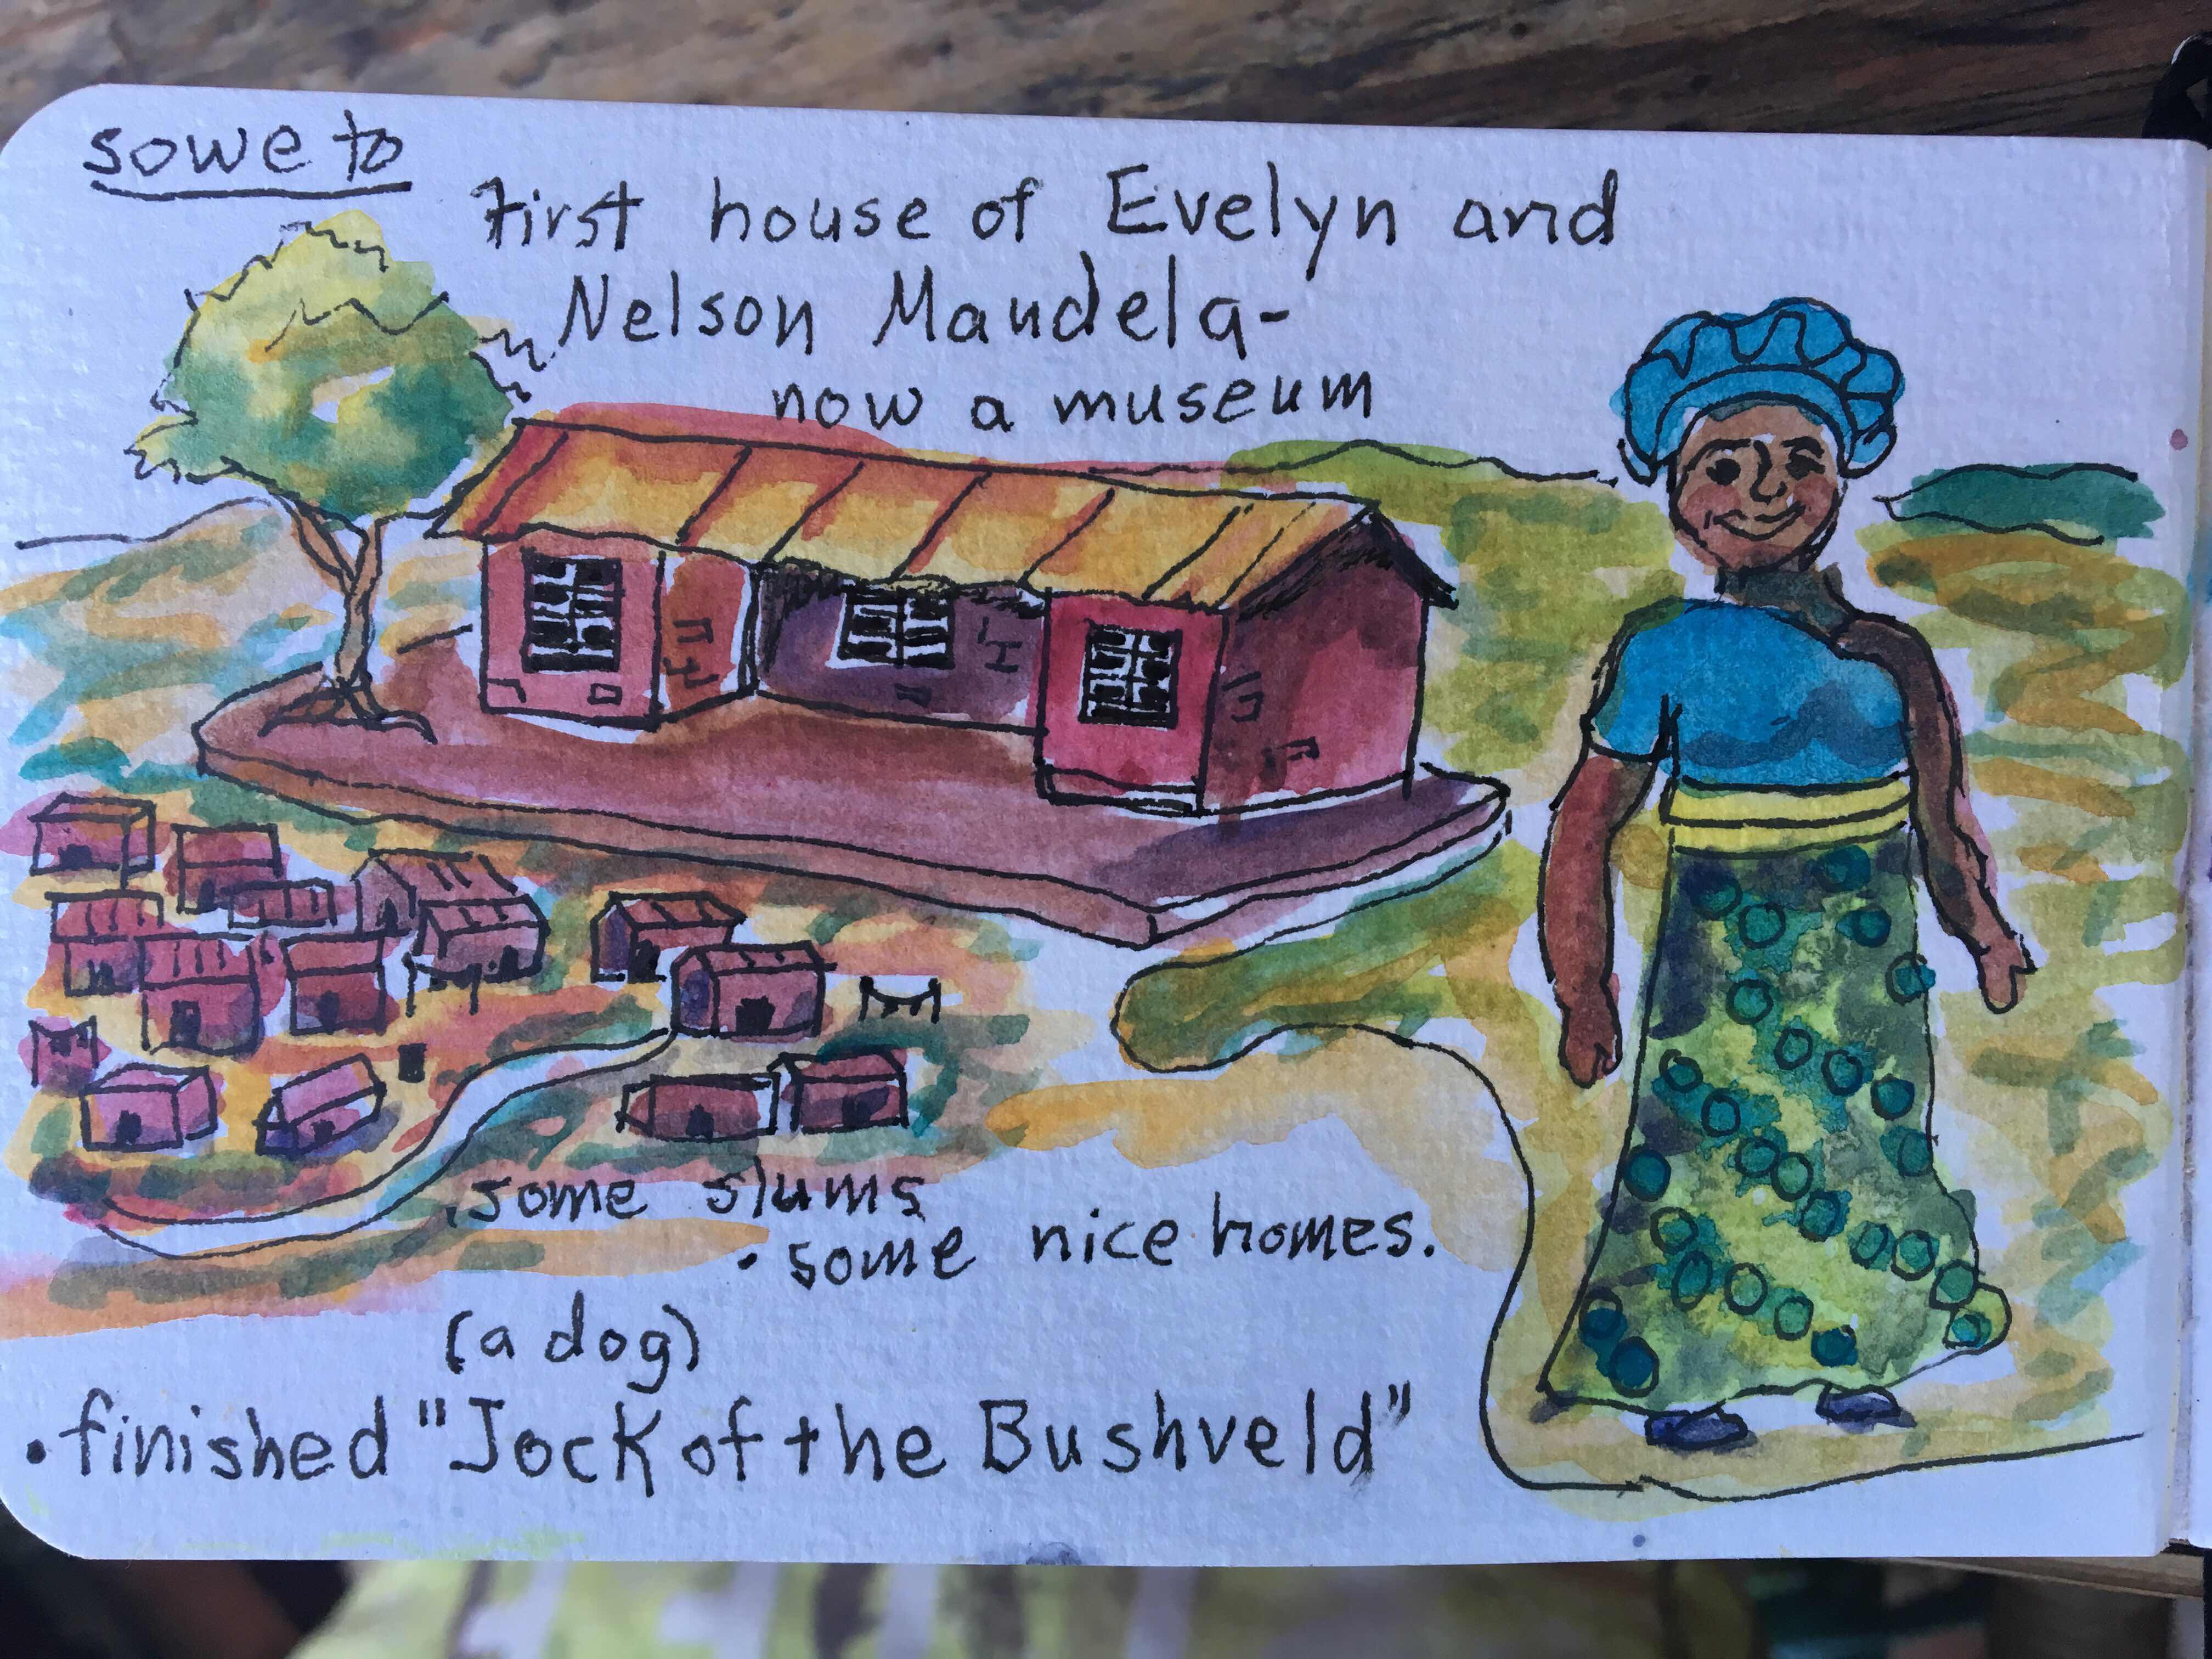 soweto
First house of Evelyn and
Nelson Mandela-
now a museum
. some slums
• some nice homes.
(a dog)
• finished "Jock of the Bushveld"